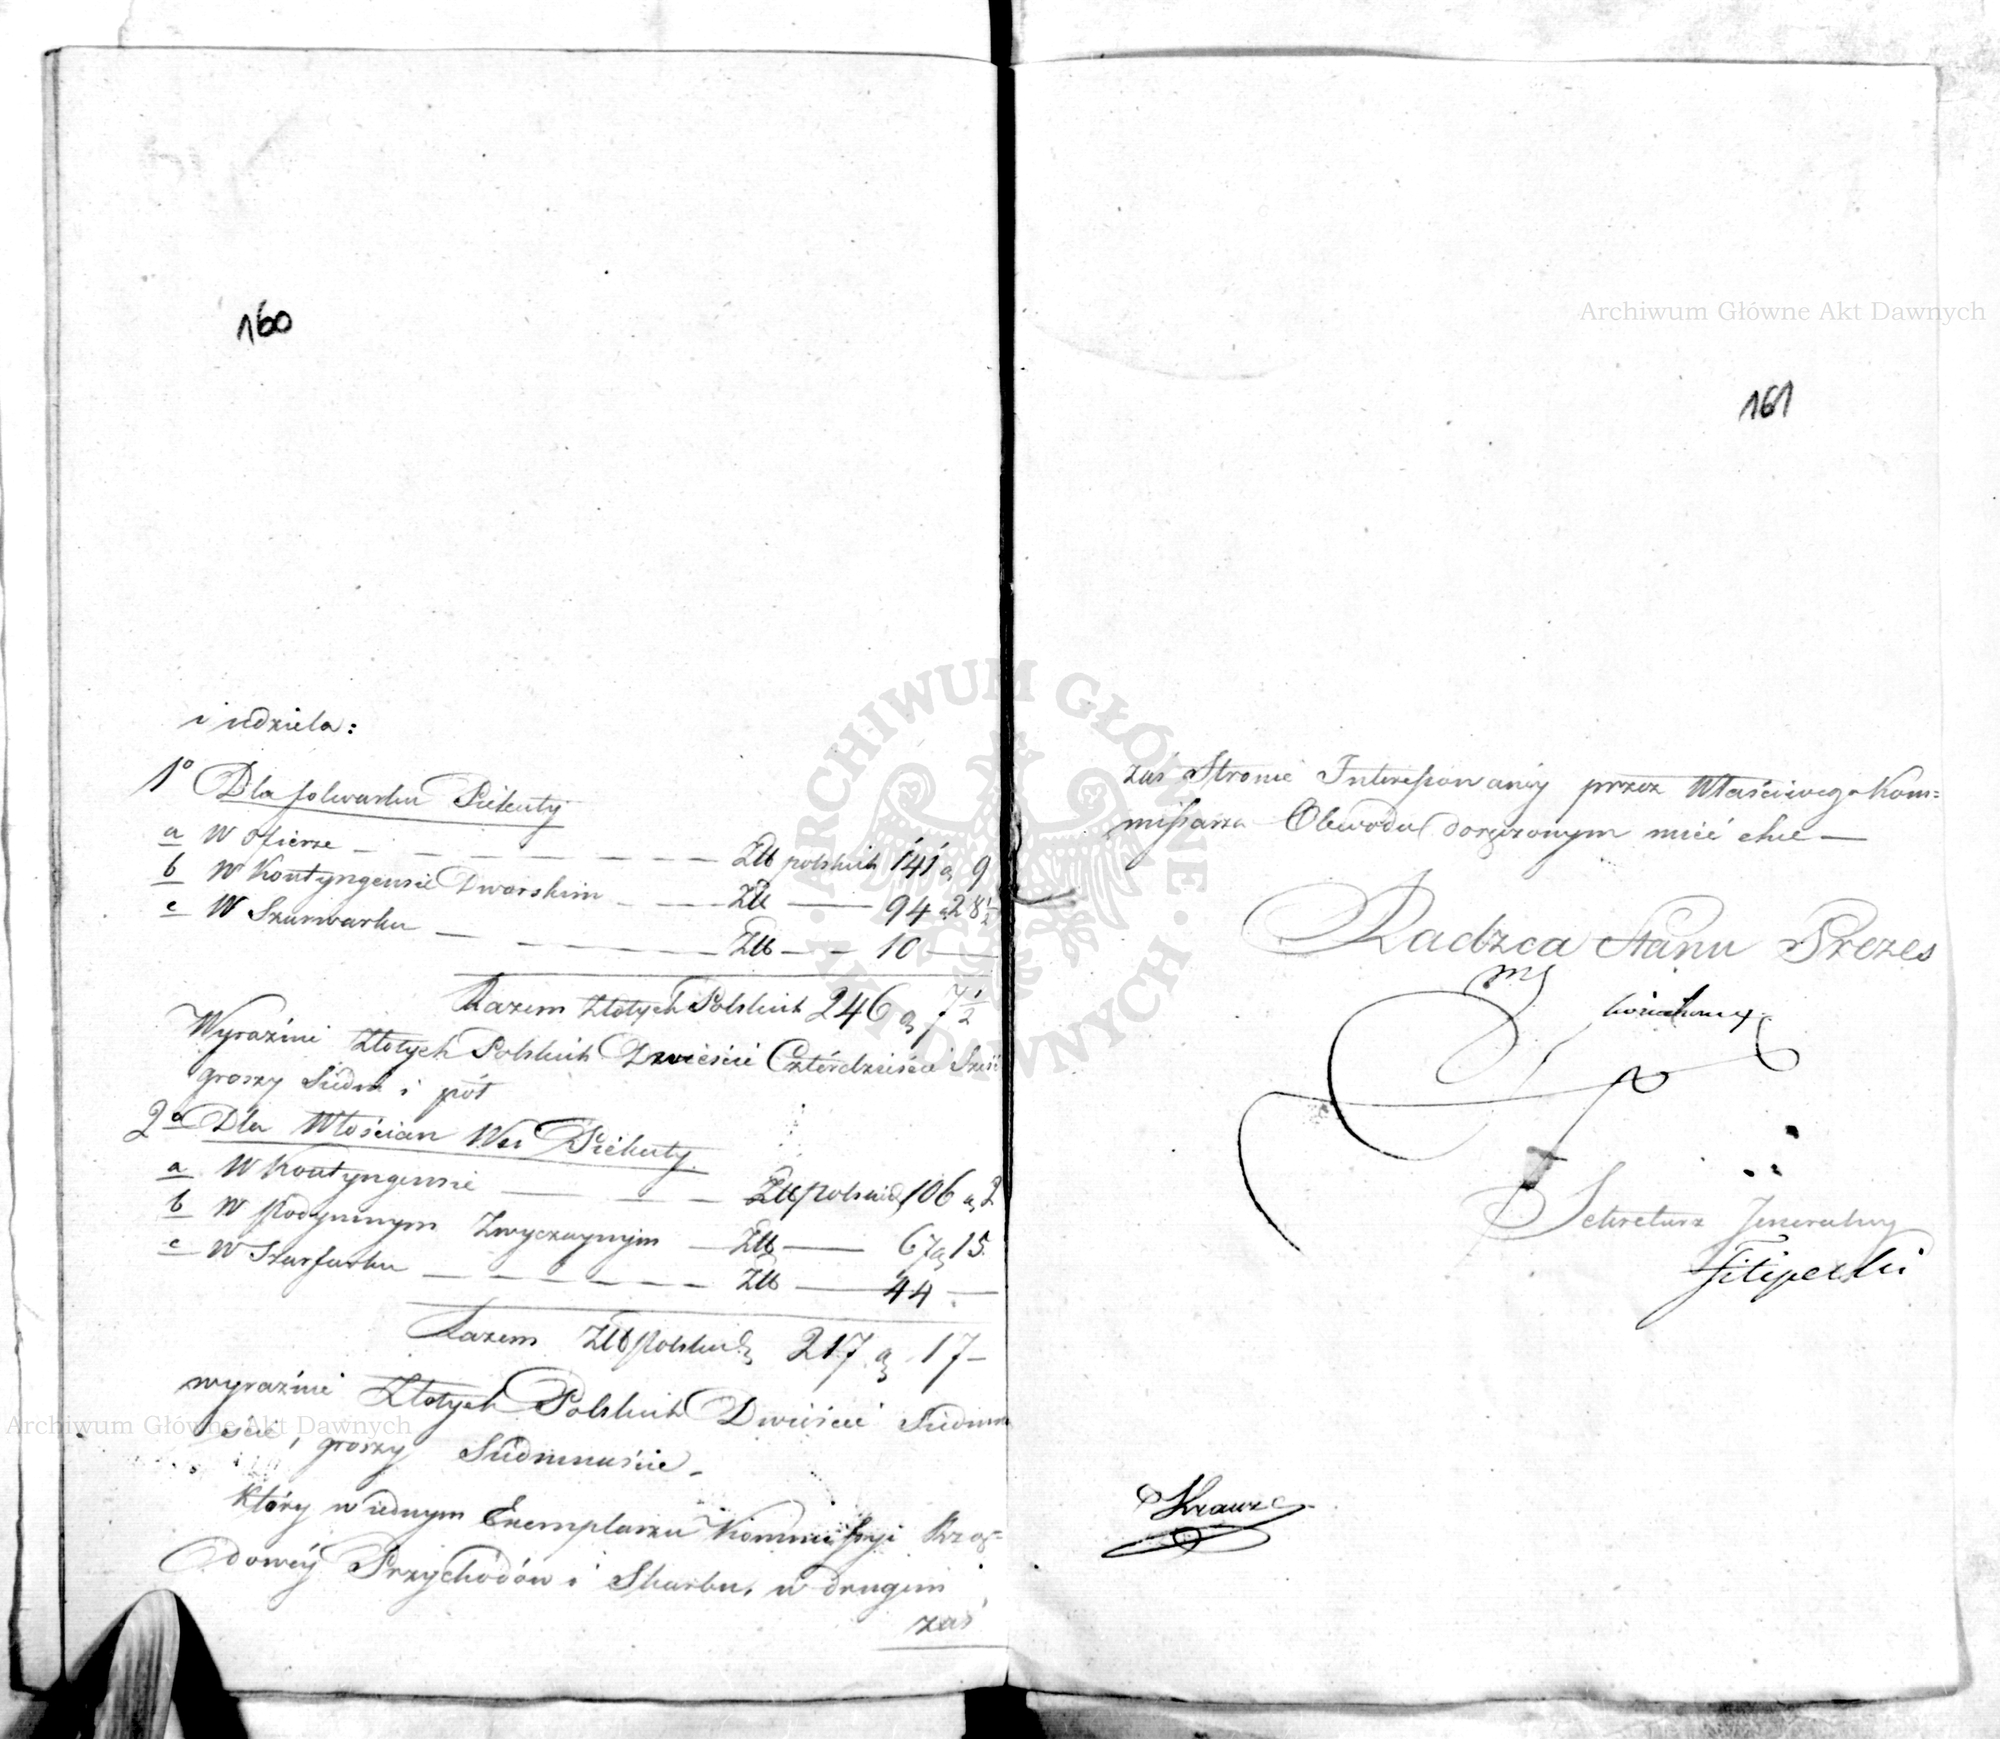 160
i udziela:
1º Dla folwarku Piekuty
a W Ofierze — — — — — — — Złł polskich 141 g 9
b W Kontyngensie Dworskim — — — Złł — 94 g 28 1/2
c W Szarwarku — — — — — — Złł — — 10 —
Razem Złotych Polskich 246 g 7 1/2
Wyraźnie Złotych Polskich Dwieście Czterdzieście Sześć
groszy Siedm i pół
2º Dla Włościan Wsi Piekuty
a W Kontyngensie — — — — Złł polskich 106 g 2
b W Podymnym Zwyczaynym — Złł — 67 g 15
c W Szarfarku — — — — — — Złł — 44 —
Razem Złł Polskich 217 g 17 —
wyraźnie Złotych Polskich Dwieście Siedmna
ście, groszy Siedmnaście —
Który w iednym Exemplarzu Kommissyi Rzą=
dowéy Przychodów i Skarbu, w drugim
zaś
Archiwum Główne Akt Dawnych
161
zaś Stronie Interessowanéy przez Właściwego Kom=
missarza Obwodu doręczonym mieć chce —
Radzca Stanu Prezes
Sekretarz Jeneralny
Filipecki
Krauze
Archiwum Główne Akt Dawnych
ARCHIWUM GŁÓWNE AKT DAWNYCH